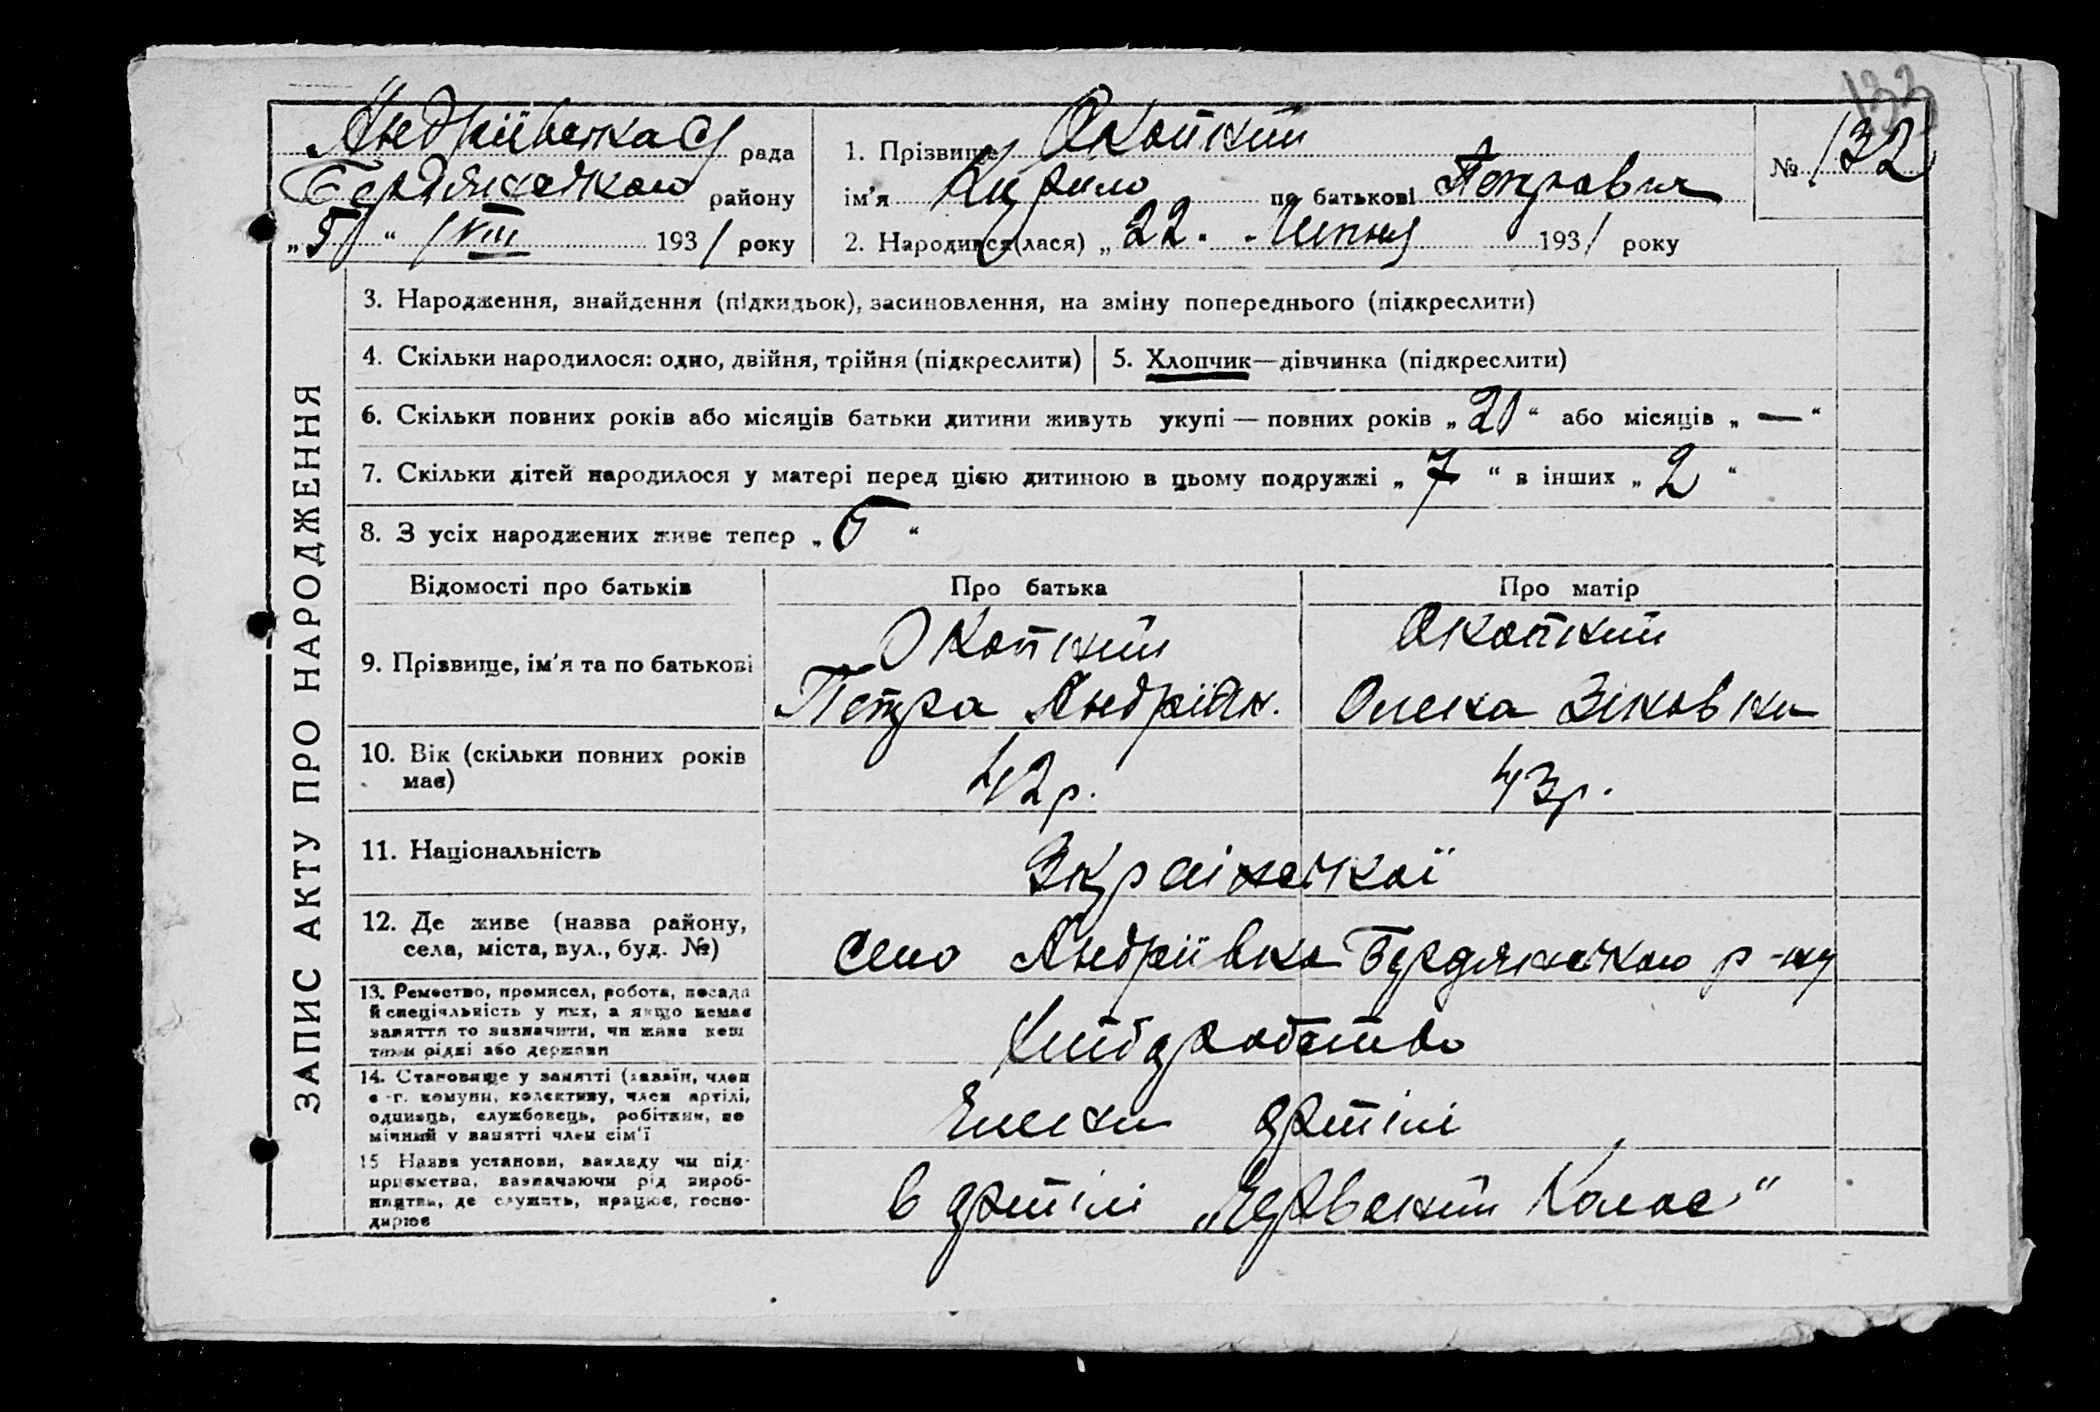 133
Андріївська С/ рада
Бердянського району
„5“ /VIII 1931 року
1. Прізвище Окопний
ім'я Кирило по батькові Петрович
2. Народився(лася) „22. Липня 1931 року
№ 132
ЗАПИС АКТУ ПРО НАРОДЖЕННЯ
3. Народження, знайдення (підкидьок), засиновлення, на зміну попереднього (підкреслити)
4. Скільки народилося: одно, двійня, трійня (підкреслити)
5. Хлопчик—дівчинка (підкреслити)
6. Скільки повних років або місяців батьки дитини живуть укупі — повних років „20“ або місяців „—“
7. Скільки дітей народилося у матері перед цією дитиною в цьому подружжі „7“ в інших „2“
8. З усіх народжених живе тепер „5“
Відомості про батьків
Про батька
Про матір
9. Прізвище, ім'я та по батькові
Окопний
Петро Андріян.
Окопний
Олена
10. Вік (скільки повних років
має)
42 р.
43 р.
11. Національність
Вкраїнської
12. Де живе (назва району,
села, міста, вул., буд. №)
село Андріївка Бердянського р-ну
13. Ремество, промисел, робота, посада
й спеціяльність у них, а якщо немає
заняття то зазначити, чи живе кош
тами рідні або держави
Хліборобство
14. Становище у занятті (хазяїн, член
с.-г. комуни, колективу, член артілі,
одинець, службовець, робітник, по
мічний у занятті член сім'ї
Члени артілі
15 Назва установи, закладу чи під-
приємства, зазначаючи рід вироб-
ництва, де служить, працює, госпо-
дарює
в артілі „Червоний Колос“